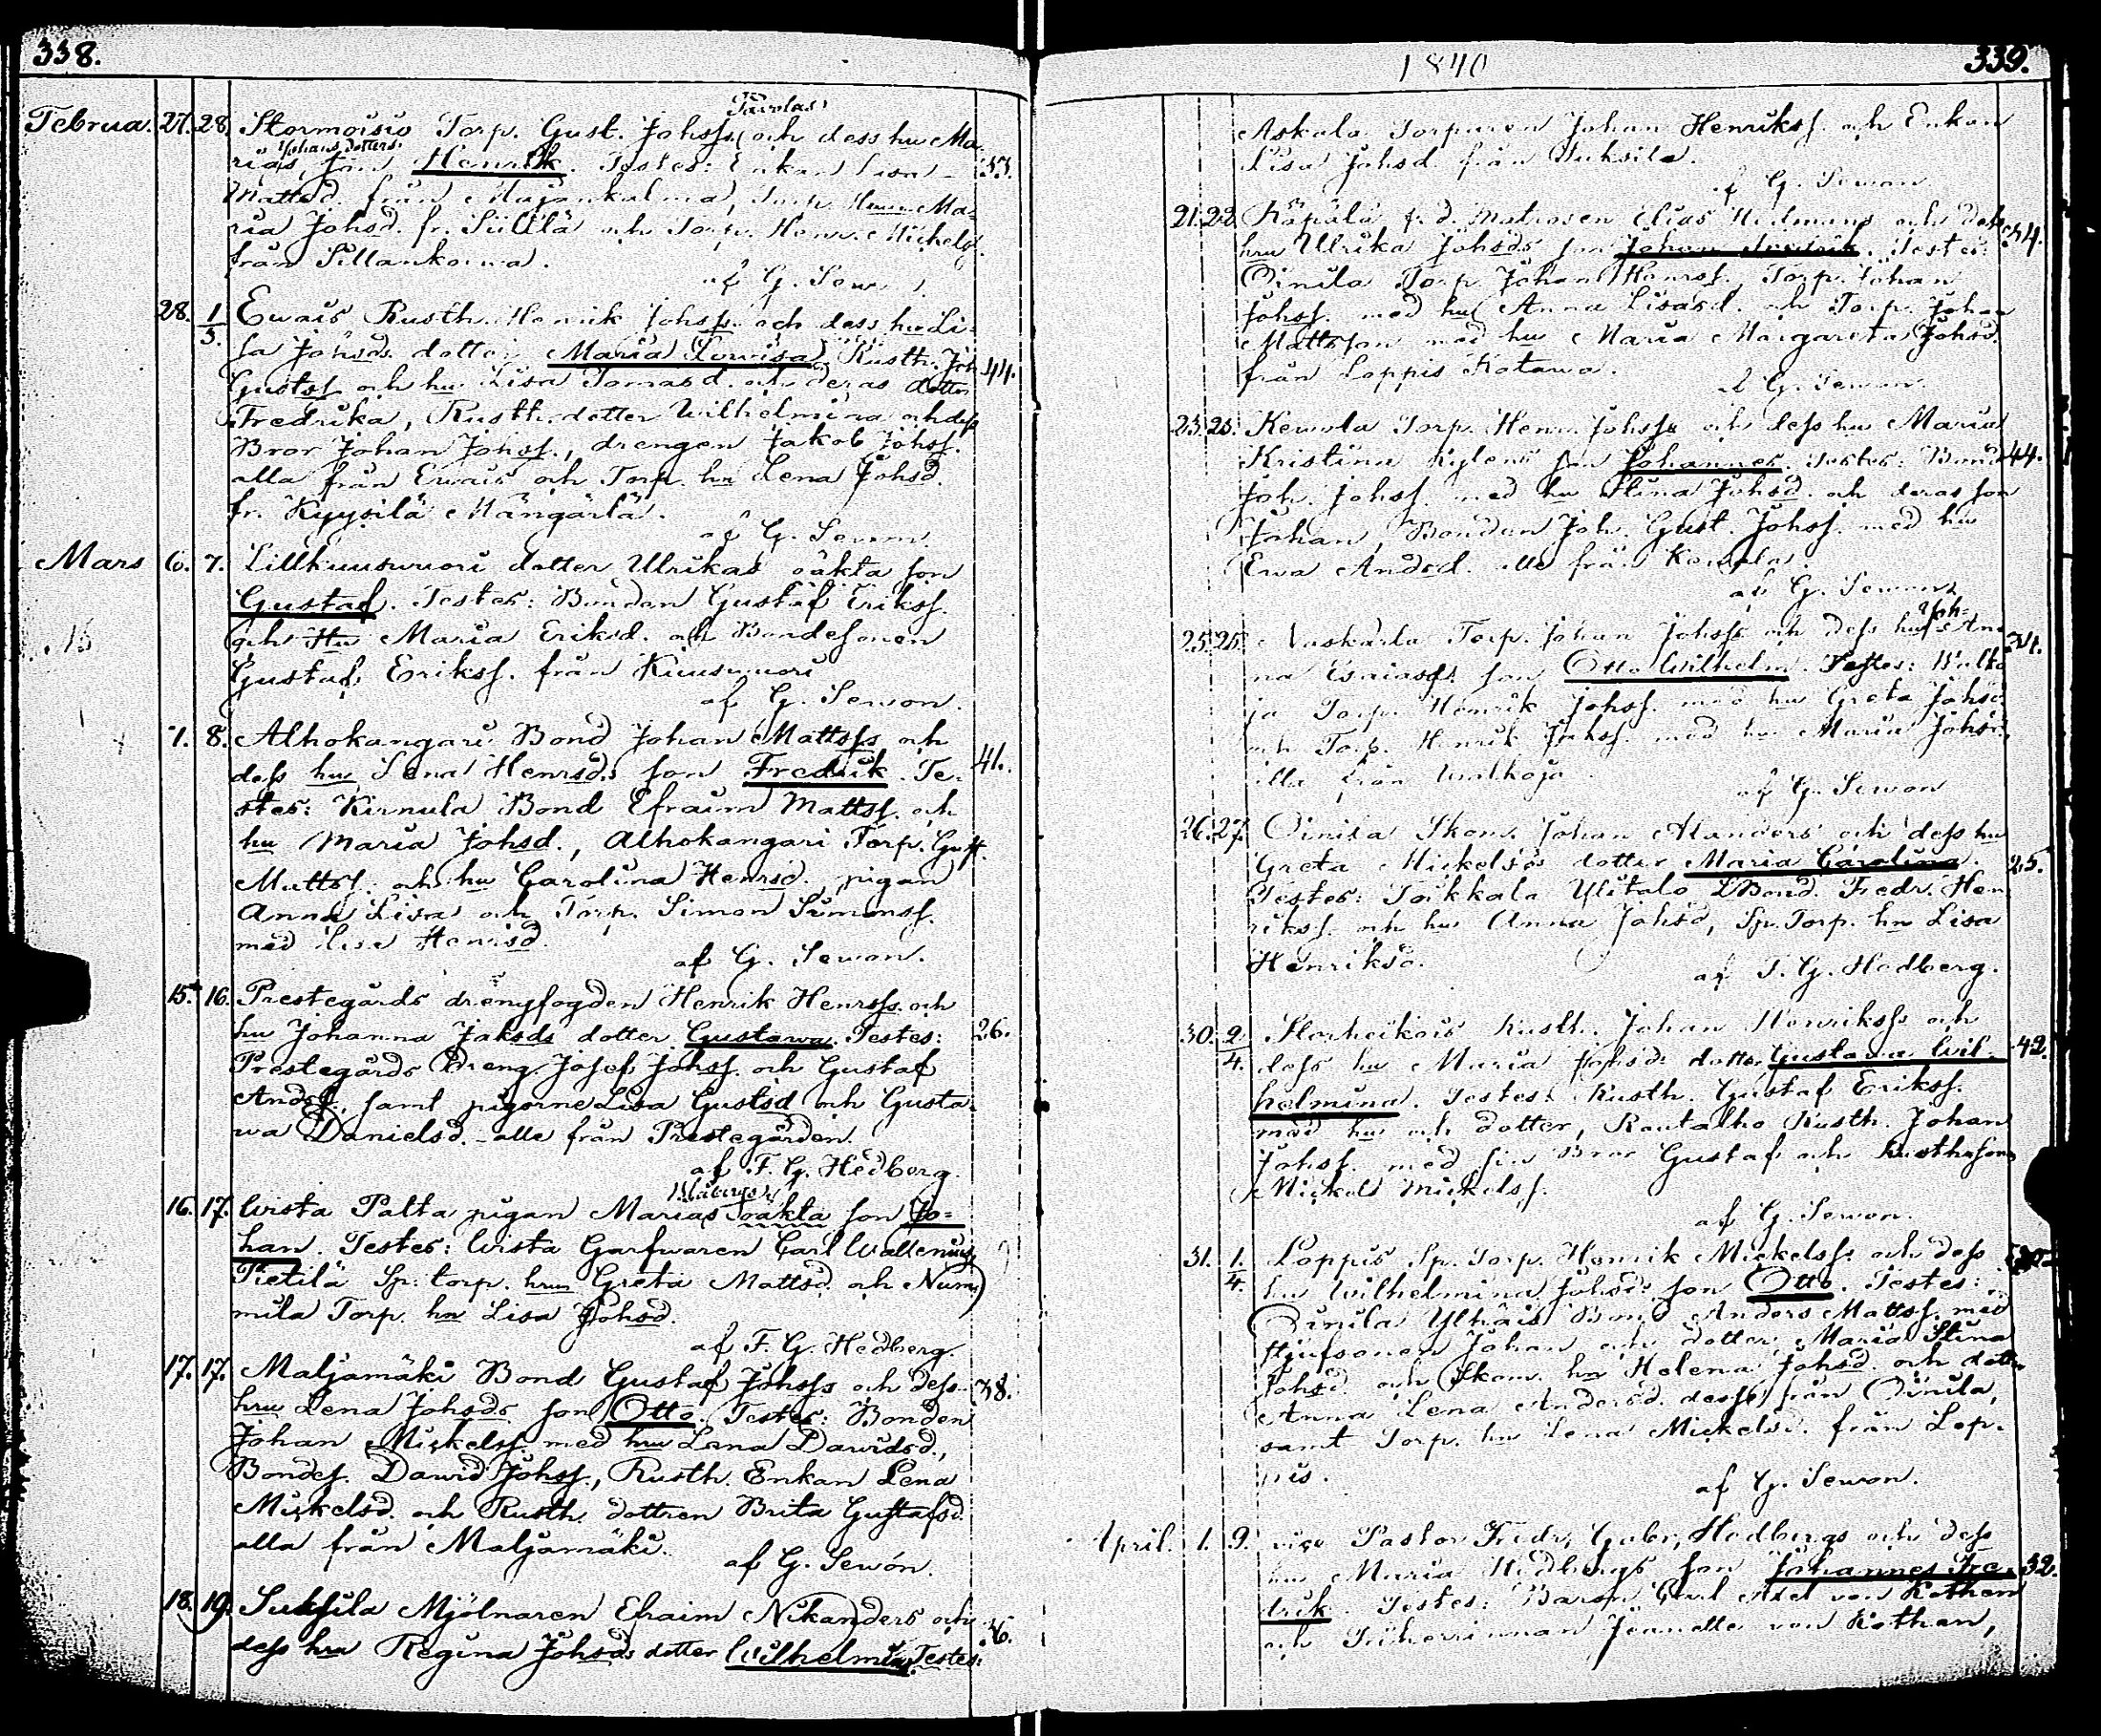 338.
Februa. 27. 28. Stormoisio Torp. Gust. Johsss och dess hu Ma-
rias Johans dotters son Henrik. Testes: Enkan Lisa 33.
Mattsd. från Majankulma, Torp. Ma-
ria Johsd. fr. och Torp. Henr. Mickelss.
från
af G. Sewon.
28. 1/3. Ewais Rusth. Henrik Johsss och dess hu Li-
sa Johsds dotter Maria Lowisa, Rusth. Joh. 44.
Gustss. och hu Lisa Tomasd. och deras dotter
Fredrika, Rusth. dotter Wilhelmina och dess
Bror Johan Johss., drengen Jakob Johss.
alla från Ewais och Torp. hu Lena Johsd.
fr. Kyysilä Mängärlä.
af G. Sewon.
Mars 6. 7. Lillkuuswuori dotter Ulrikas oäkta son
Gustaf. Testes: Bonden Gustaf Erikss.
och Hu Maria Eriksd. och Bondesonen
Gustaf Erikss. från Kuuswuori
af G. Sewon.
7. 8. Alhokangari Bond Johan Mattsss och
dess hu Lena Henrsds son Fredrik. Te- 41.
stes: Kirnula Bond Efraim Mattss. och
hu Maria Johsd., Alhokangari Torp. Gust.
Mattss. och hu Carolina Henrsd. pigan
Anna Lisa och Torp. Simon Simonss.
med Henrsd.
af G. Sewon.
15. 16. Prestegårds drengfogden Henrik Henrsss och
hu Johanna Jaksds dotter Gustawa. Testes: 26.
Prestegårds Dreng Josef Johss. och Gustaf
Andss. samt pigorne Lisa Gustsd och Gusta-
wa Danielsd. alle från Prestegården.
af F. G. Hedberg.
16. 17. Wista Palta pigan Marias oäkta son Jo-
han. Testes: Wista Garfwaren Carl Wallenius,
Pietilä Sp: torp. hru Greta Mattsd. och Num-
mila Torp. hu Lisa Johsd.
af F. G. Hedberg.
17. 17. Maljamäki Bond Gustaf Johsss och dess 38.
hru Lena Johsds son Otto. Testes: Bonden
Johan Mickelss. med hru Lena Dawidsd.,
Bondes. Dawid Johss., Rusth. Enkan Lena
Mickelsd. och Rusth. dottren Brita Gustafsd.
alla från Maljamäki.
af G. Sewón.
18. 19. Suksila Mjölnaren Efraim Nikanders och
dess hru Regina Johsds dotter Wilhelmina. Testes: 36.
1840
339.
Askala Torparen Johan Henrikss. och Enkan
Lisa Johsd. från Suksila.
af G. Sewon
21. 22. Käpälä f. d. Matrosen Elias Hedmans och dess 34.
hru Ulrika Johsds son Johan Fredrik. Testes:
Oinila Torp. Johan Henrss., Torp. Johan
Johss. med hu Anna Lisasd. och Torp. Johan
Mattsson med hu Maria Margareta Johsd.
från Loppis Katawa.
af G. Sewon
23. 25. Kewola Torp. Henr. Johsss och dess hu Maria
Kristina Kylens son Johannes. Testes: Bond 44.
Joh. Johss. med hu Stina Johsd. och deras son
Johan, Bonden Joh. Gust. Johss. med hu
Ewa Andsd. alle från Kewola.
af G. Sewon
25. 25. Naskarla Torp. Johan Johsss och dess hus An-
na Esaiasds son Otto Wilhelm. Testes: Walko- 34.
ja Torp. Henrik Johss. med hu Greta Johsd.
och Torp. Henrik Johss. med hu Maria Johsd.
alla från Walkoja.
af G. Sewon
26. 27. Oinila Skom. Johan Alanders och dess hu
Greta Mickelsds dotter Maria Carolina. 25.
Testes: Toikkala Ylitalo Bond. Fredr. Hen-
rikss. och hu Anna Johsd, Sp. Torp. hu Lisa
Henriksd.
af F. G. Hedberg.
30. 2/4. Storheikois Rusth. Johan Henriksss och
dess hu Maria Johsds dotter Gustawa Wil- 42.
helmina. Testes: Rusth. Gustaf Erikss.
med hu och dotter, Rautalho Rusth. Johan
Johss. med sin Bror Gustaf och Rusthsson
Mickel Mickelss.
af G. Sewon.
31. 1/4. Loppis Sp. Torp. Henrik Mickelsss och dess
hu Wilhelmina Johsds son Otto. Testes:
Oinila Ylhäis Bond Anders Mattss. med
Stjufsonen Johan och dotter Maria Stina
Johsd. och Skom. hu Helena Johsd. och dotter
Anna Lena Andersd. desse från Oinila,
samt Torp. hu Lena Mickelsd. från Lop-
pis.
af G. Sewon.
April. 1. 9. vice Pastor Fredr. Gabr. Hedbergs och dess
hu Maria Hedbergs son Johannes Fre- 32.
drik. Testes: Baron Carl Axel von Kothen
och Friherrinnan Jeanette von Kothen,